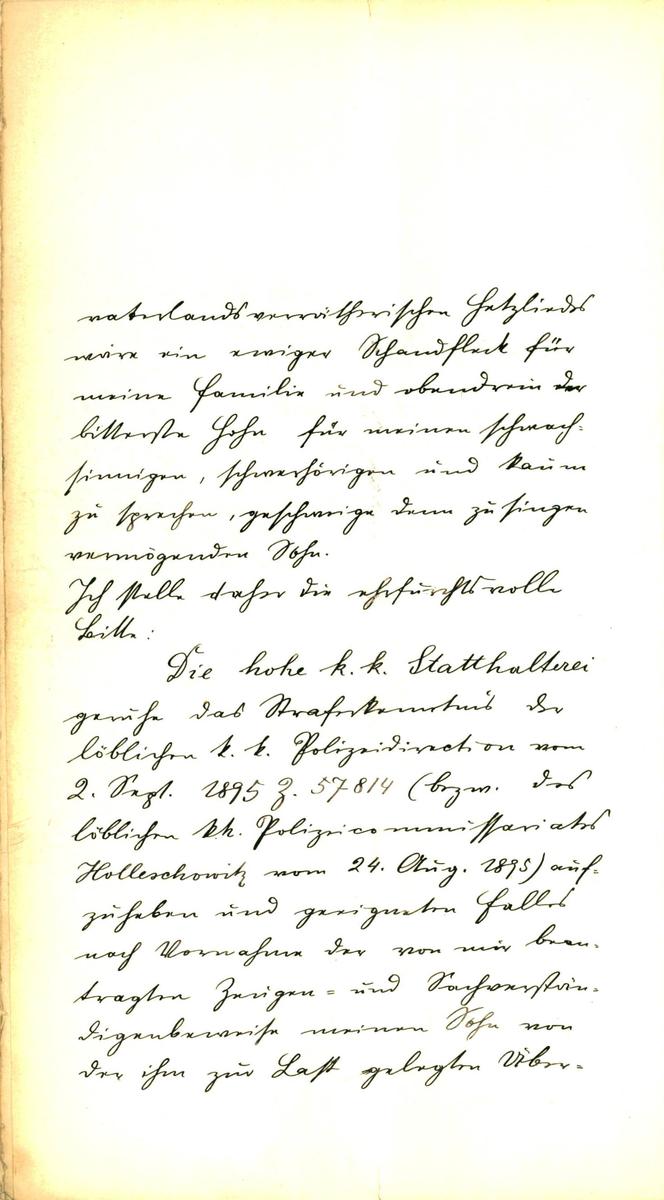 vaterlandsverrätherischen Hetzliedes
wäre ein ewiger Schandfleck für
meine Familie und obendrein der
bitterste Hohn für meinen schwach-
sinnigen, schwerhörigen und kaum
zu sprechen, geschweige denn zu singen
vermögenden Sohn.
Ich stelle daher die ehrfurchtsvolle
Bitte:
Die hohe k. k. Statthalterei
geruhe das Straferkenntnis der
löblichen k. k. Polizeidirection vom
2. Sept. 1895 Z. 57814 (bezw. des
löblichen kk. Polizeicommissariates
Holleschowitz vom 24. Aug. 1895) auf-
zuheben und geeigneten Falles
nach Vornahme der von mir bean-
tragten Zeugen- und Sachverstän-
digenbeweise meinen Sohn von
der ihm zur Last gelegten Über-